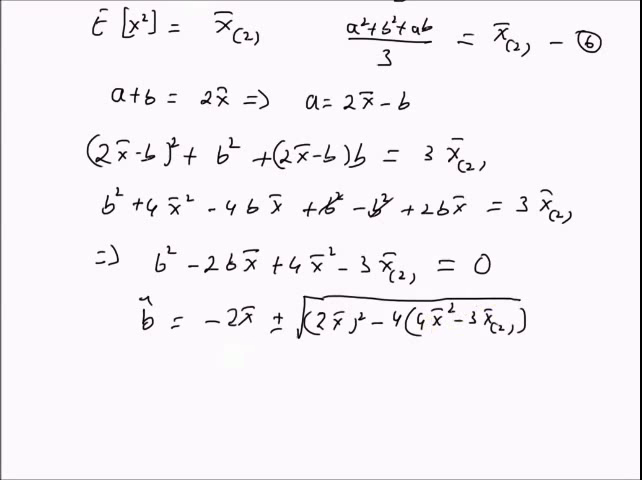 E [x²] = x̄₍₂₎   (a²+b²+ab)/3 = x̄₍₂₎ - ⑥
a+b = 2x̄ => a = 2x̄ - b
(2x̄-b)² + b² + (2x̄-b)b = 3 x̄₍₂₎
b² + 4x̄² - 4bx̄ + b² - b² + 2bx̄ = 3 x̄₍₂₎
=> b² - 2bx̄ + 4x̄² - 3x̄₍₂₎ = 0
b̂ = -2x̄ ± √((2x̄)² - 4(4x̄² - 3x̄₍₂₎))